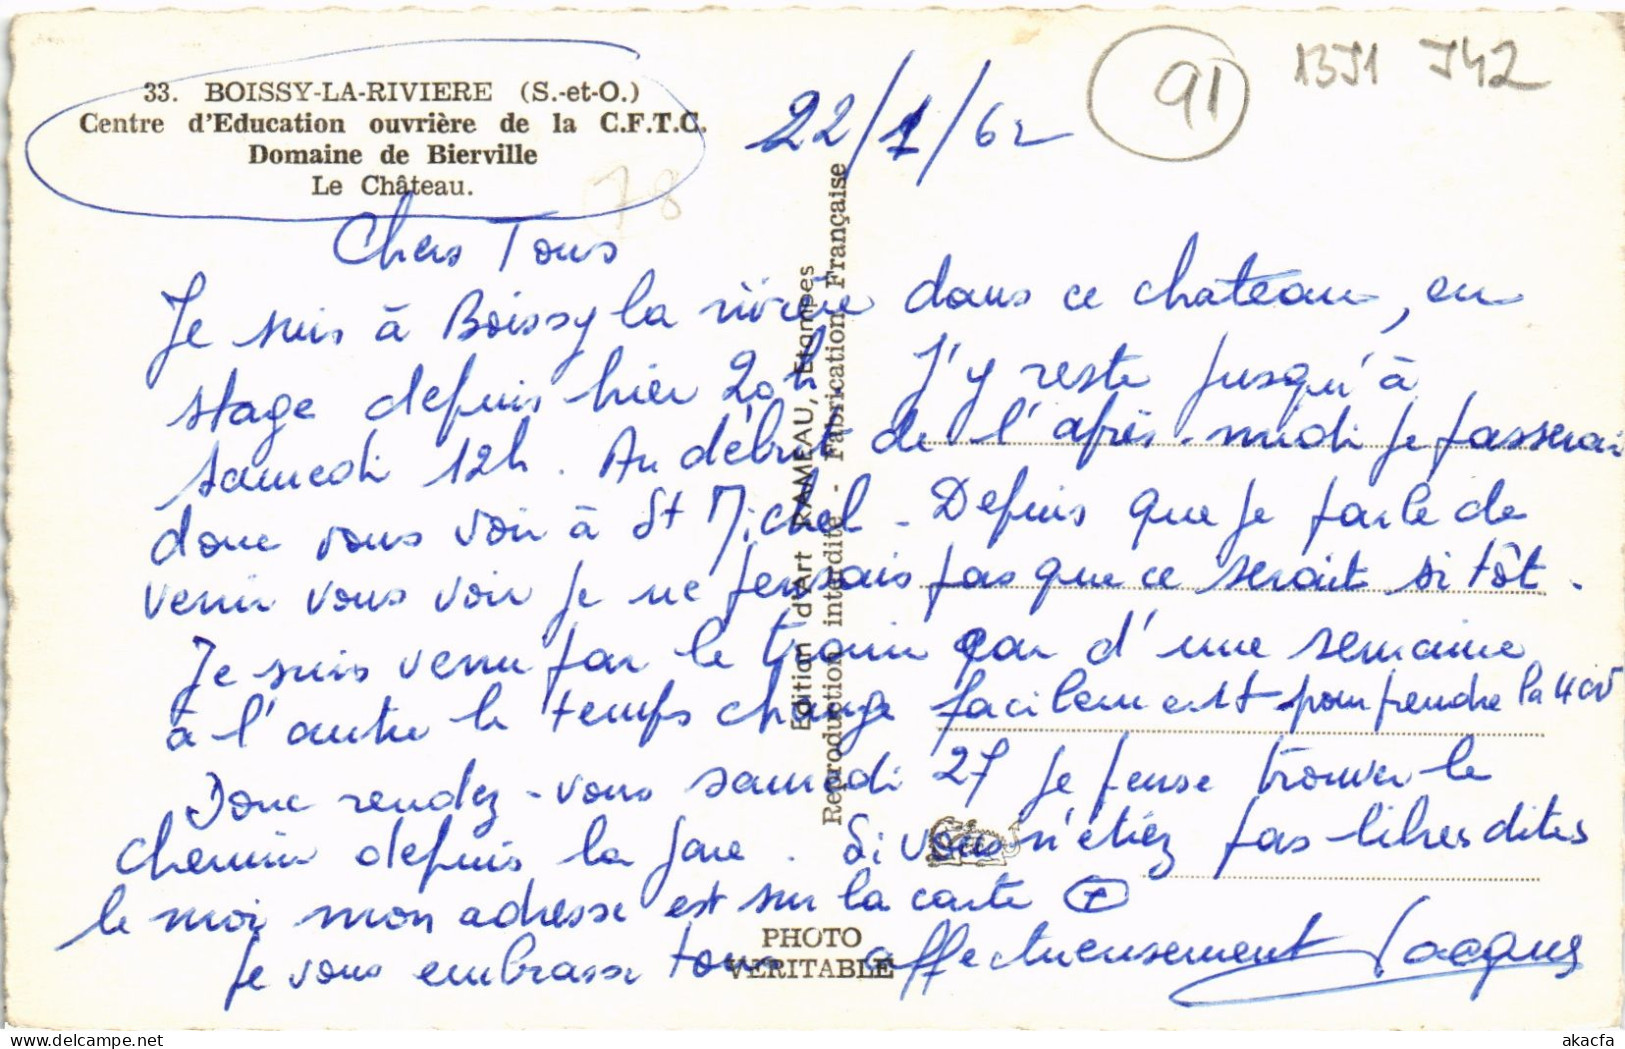 33. BOISSY-LA-RIVIERE (S.-et-O.)
Centre d'Education ouvrière de la C.F.T.C.
Domaine de Bierville
Le Château.
78
22/1/62
91
13J1 J42
Chers Tous
Je suis à Boissy la rivière dans ce chateau, en
stage depuis hier 20h J'y reste jusqu'à
samedi 12h. Au début de l'après-midi je passerai
donc vous voir à St Michel - Depuis que je parle de
venir vous voir je ne pensais pas que ce serait si tôt.
Je suis venu par le train car d'une semaine
à l'autre le temps change facilement pour prendre la 4cv
Donc rendez-vous samedi 27 je pense trouver le
chemin depuis la gare. Si vous n'étiez pas libres dites
le moi mon adresse est sur la carte
Je vous embrasse tous affectueusement Jacques
Edition d'Art RAMEAU, Etampes
Reproduction interdite - Fabrication Française
PHOTO
VERITABLE
akacfa
delcampe.net